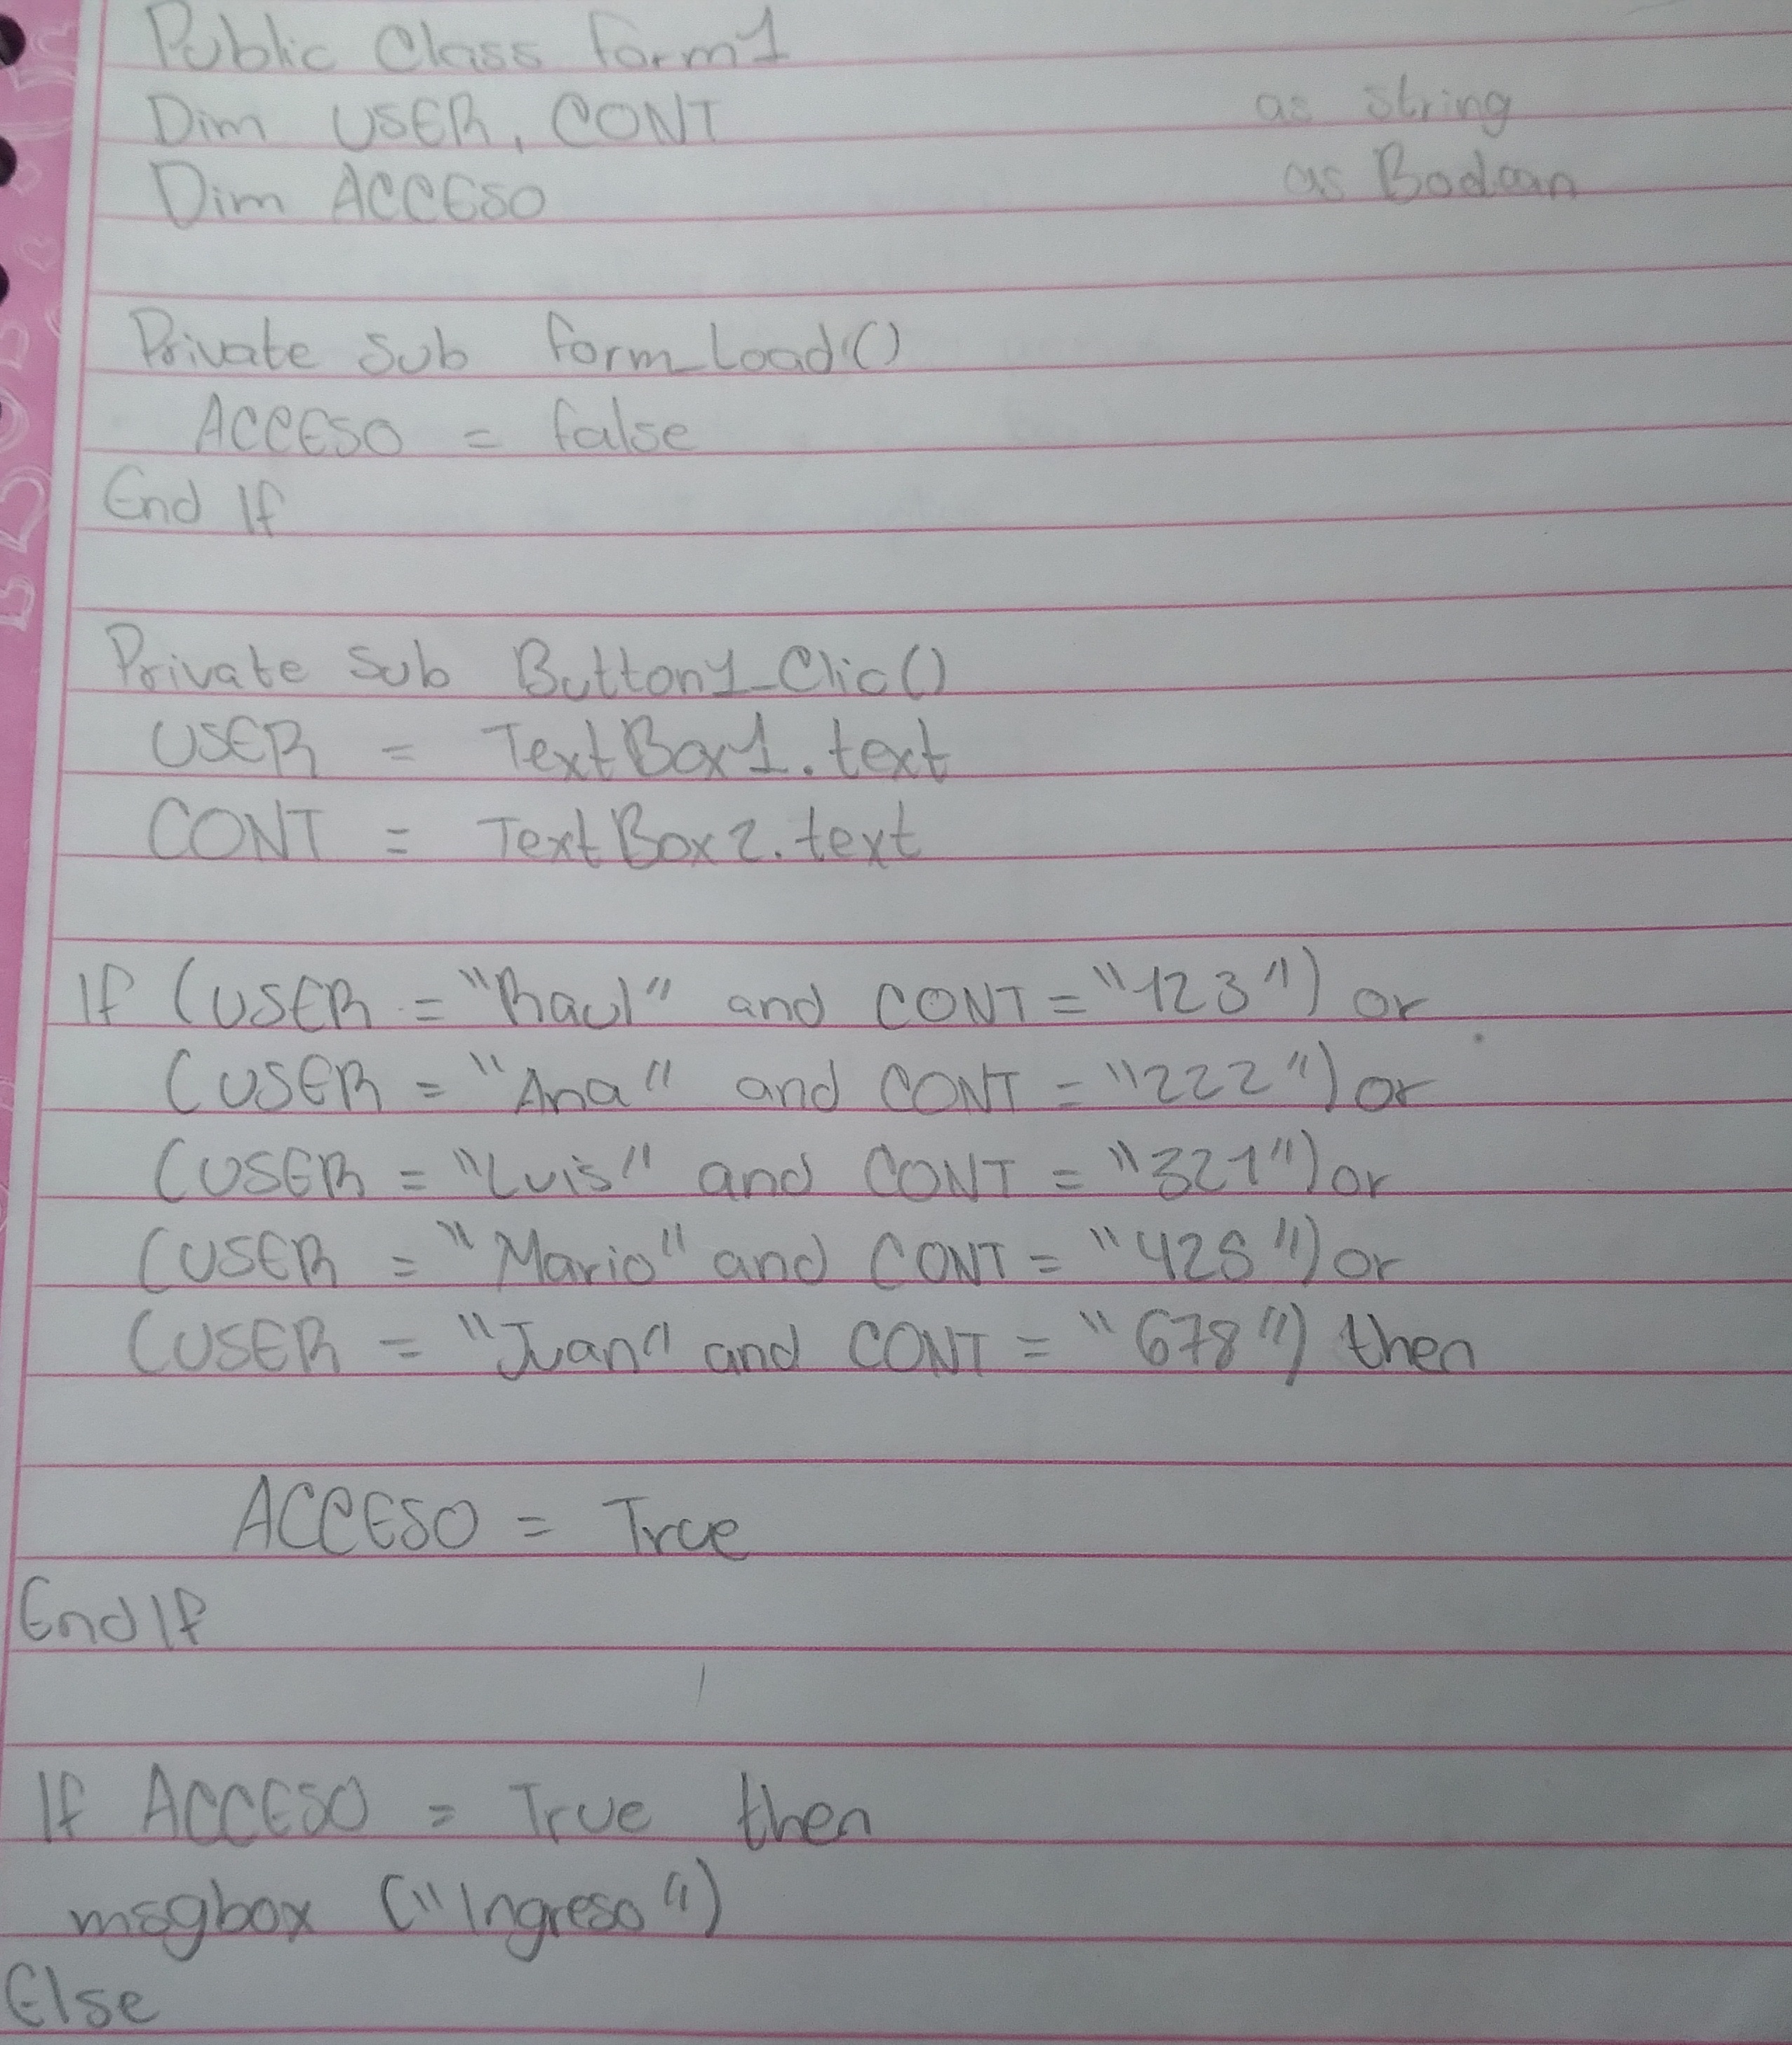 Public Class form1
Dim USER, CONT as string
Dim ACCESO as Boolean
Private Sub form_Load()
ACCESO = false
End If
Private Sub Button1_Clic()
USER = TextBox1.text
CONT = TextBox2.text
If (USER = "Raul" and CONT = "123") or
(USER = "Ana" and CONT = "222") or
(USER = "Luis" and CONT = "321") or
(USER = "Mario" and CONT = "428") or
(USER = "Juan" and CONT = "678") then
ACCESO = True
End If
If ACCESO = True then
msgbox ("Ingreso")
Else